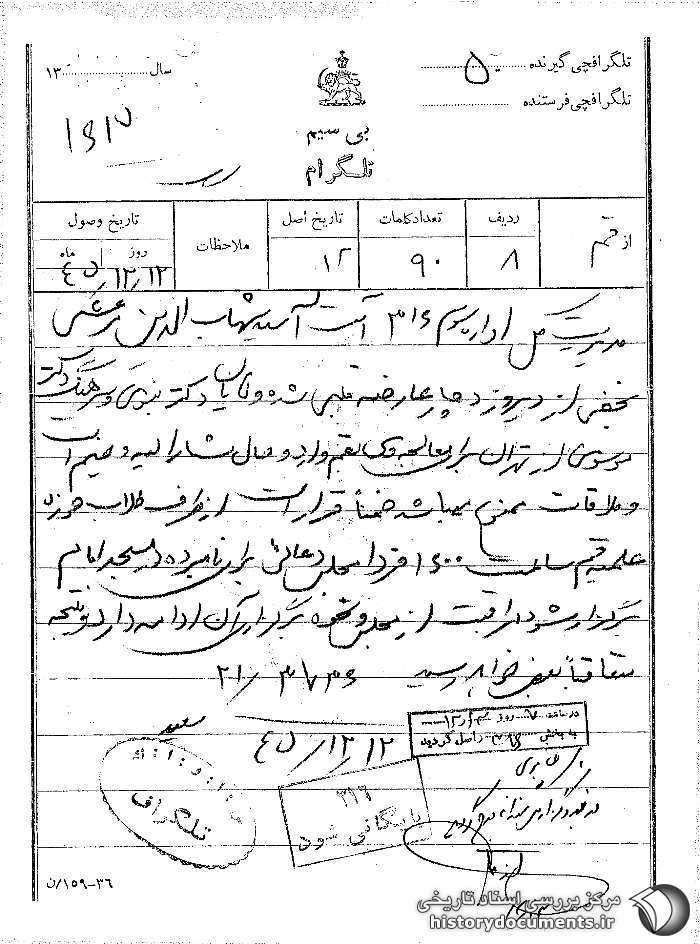 تلگرافچی گیرنده ۵
تلگرافچی فرستنده
سال ۱۳
بی سیم
تلگرام
از قم
ردیف
۸
تعداد کلمات
۹۰
تاریخ اصل
۱۲
ملاحظات
تاریخ وصول
روز ماه
۴۵/۱۲/۱۲
مدیریت کل اداره سوم ۳۱۶ آیت اله سید شهاب الدین مرعشی
نجفی از دیروز دچار عارضه قلبی شده و آقایان دکتر نبوی و سرهنگ دکتر
موسوی از تهران برای معالجه وی بقم وارد و حال مشارالیه وخیم است
و ملاقات ممنوع میباشد ضمناً قرار است از طرف طلاب حوزه
علمیه قم ساعت ۱۶۰۰ فردا مجلس دعائی برای نامبرده در مسجد امام
برگزار شود مراقبت از مجلس و نحوه برگزاری آن ادامه دارد نتیجه
متعاقباً بعرض خواهد رسید ۲۱/۳۷۳۶
۴۵/۱۲/۱۲
در ساعت روز
به بخش ۳۱۶ واصل گردید
تلگراف
۳۱۶
بایگانی شود
۳۶-۱۵۹/ن
مرکز بررسی اسناد تاریخی
historydocuments.ir